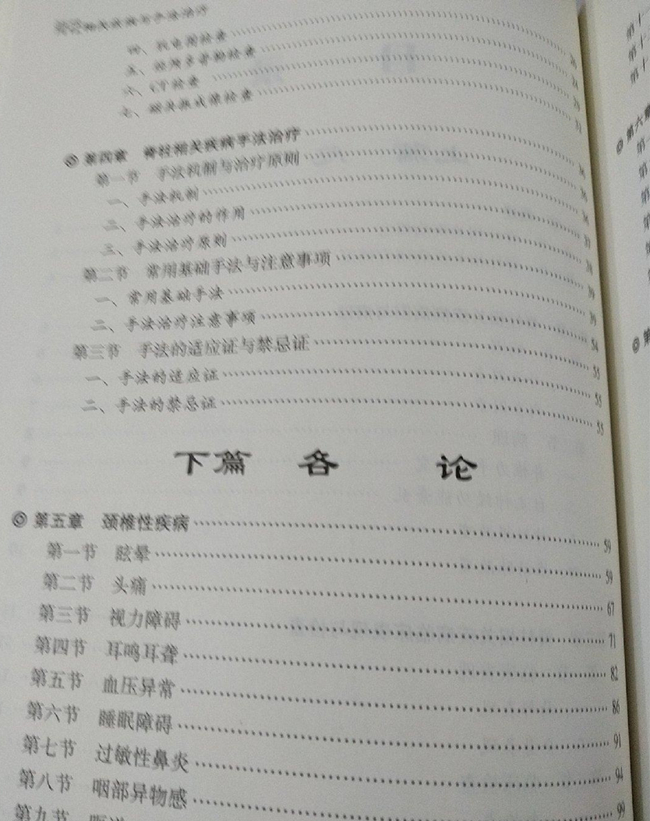 脊柱相关疾病与手法治疗
四、肌电图检查
五、经颅多普勒检查
六、CT检查
七、磁共振成像检查
◎ 第四章 脊柱相关疾病手法治疗
第一节 手法机制与治疗原则 36
一、手法机制
二、手法治疗的作用
三、手法治疗原则 37
第二节 常用基础手法与注意事项 38
一、常用基础手法 39
二、手法治疗注意事项 39
第三节 手法的适应证与禁忌证 54
一、手法的适应证 55
二、手法的禁忌证 55
55
下篇 各 论
◎ 第五章 颈椎性疾病 59
第一节 眩晕 59
第二节 头痛 67
第三节 视力障碍 71
第四节 耳鸣耳聋 82
第五节 血压异常 86
第六节 睡眠障碍 91
第七节 过敏性鼻炎 94
第八节 咽部异物感 99
第九节